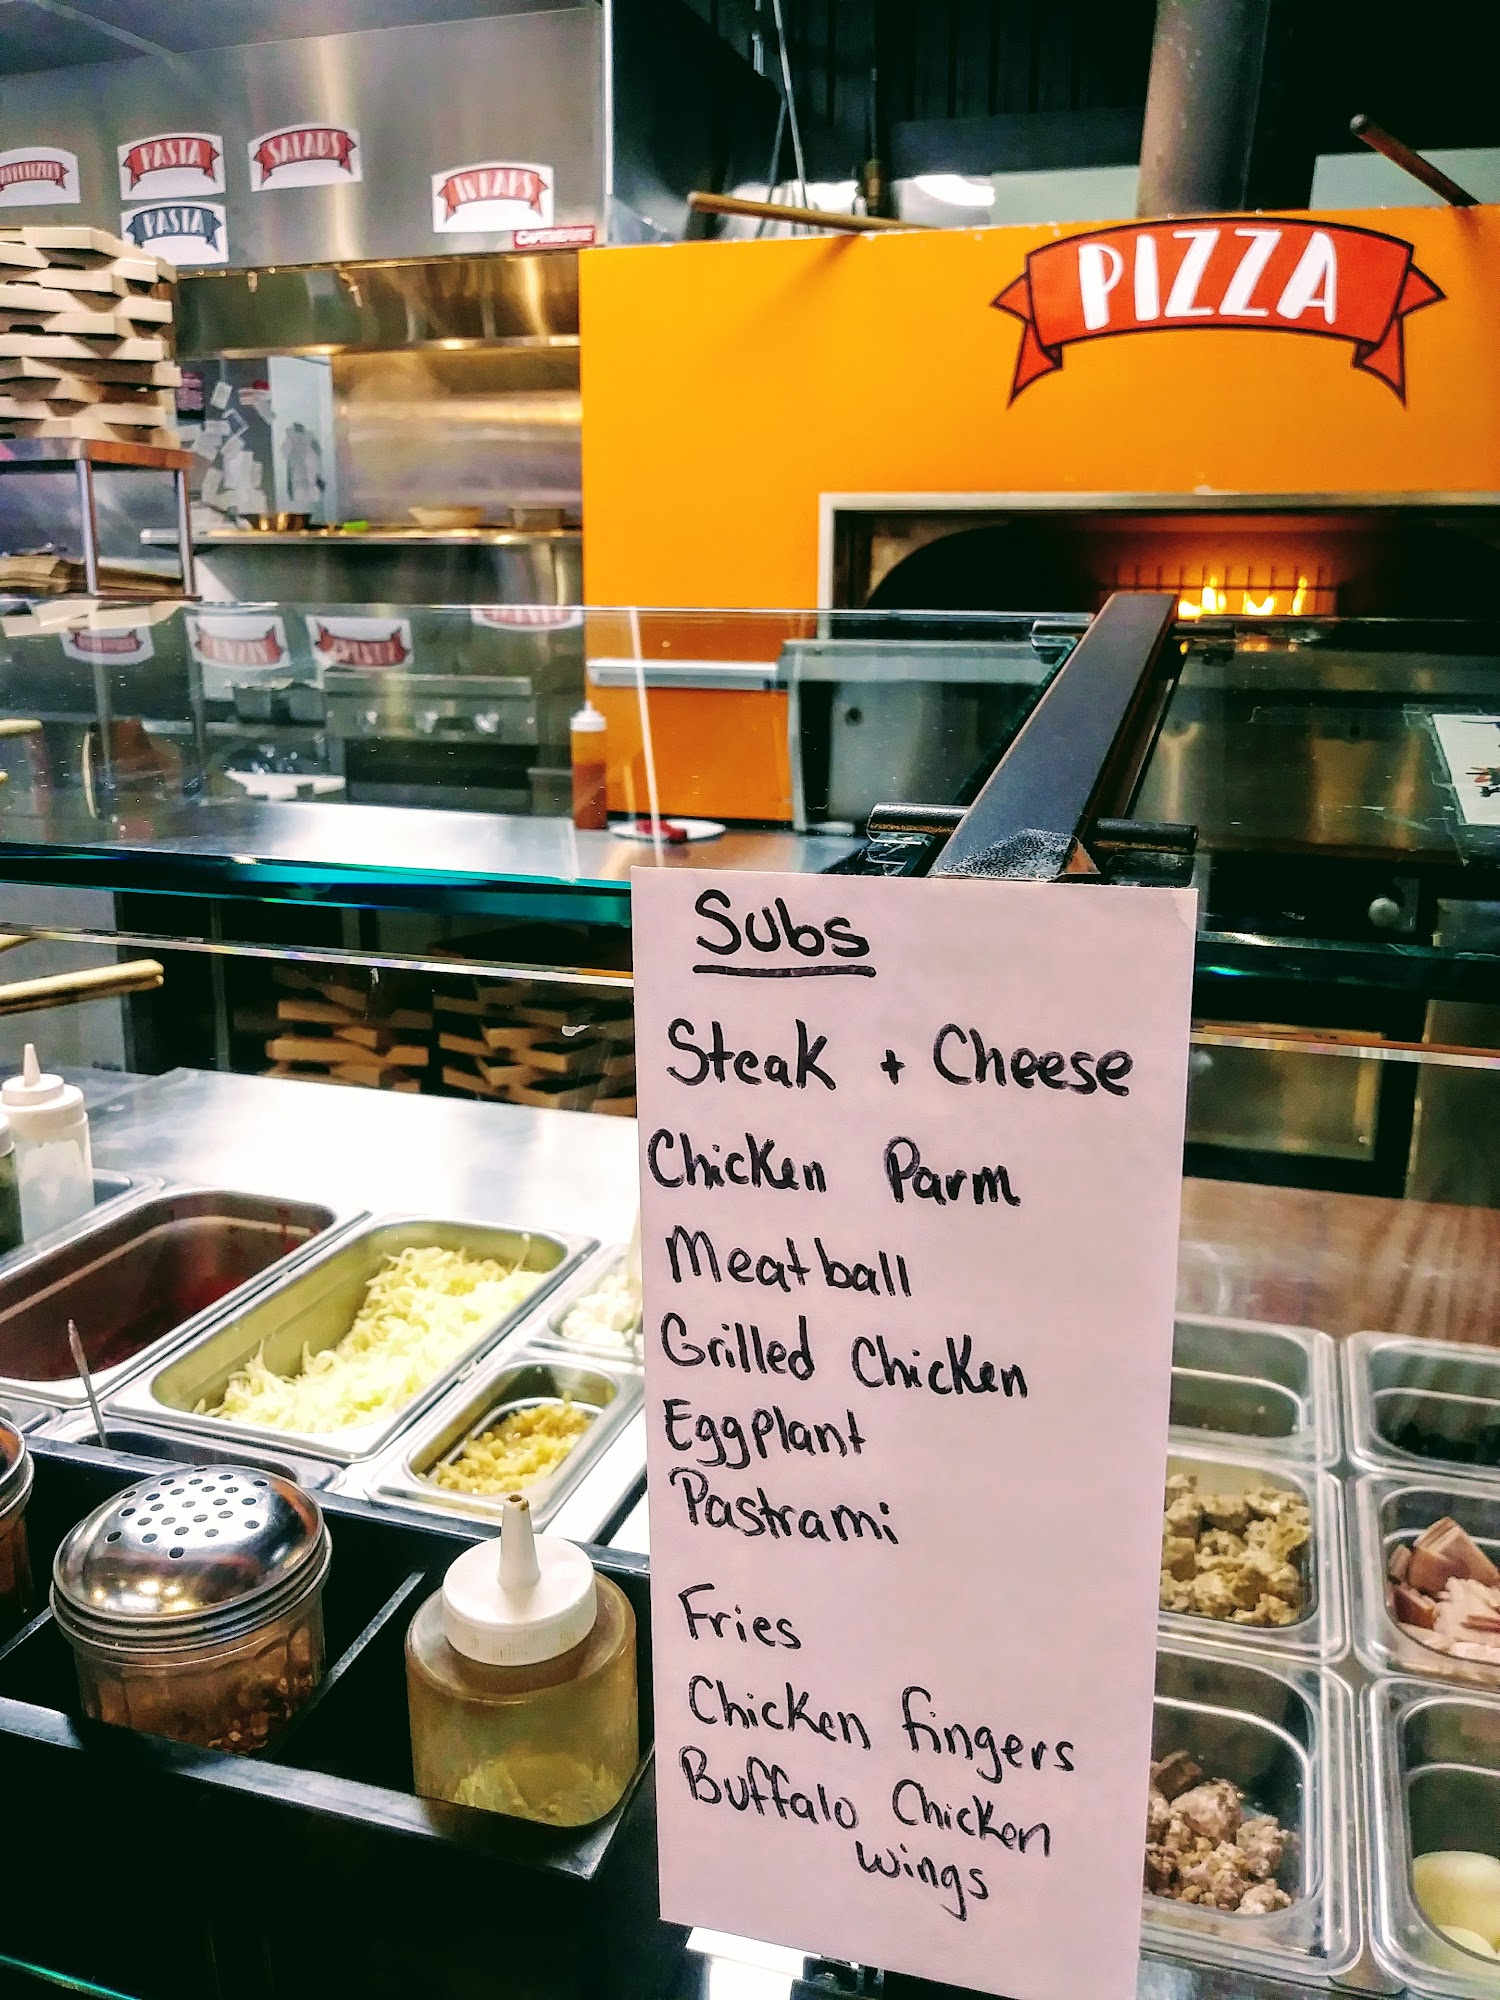 PASTA
SALADS
WRAPS
PASTA
PIZZA
Subs
Steak + Cheese
Chicken Parm
Meatball
Grilled Chicken
Eggplant
Pastrami
Fries
Chicken fingers
Buffalo Chicken
wings